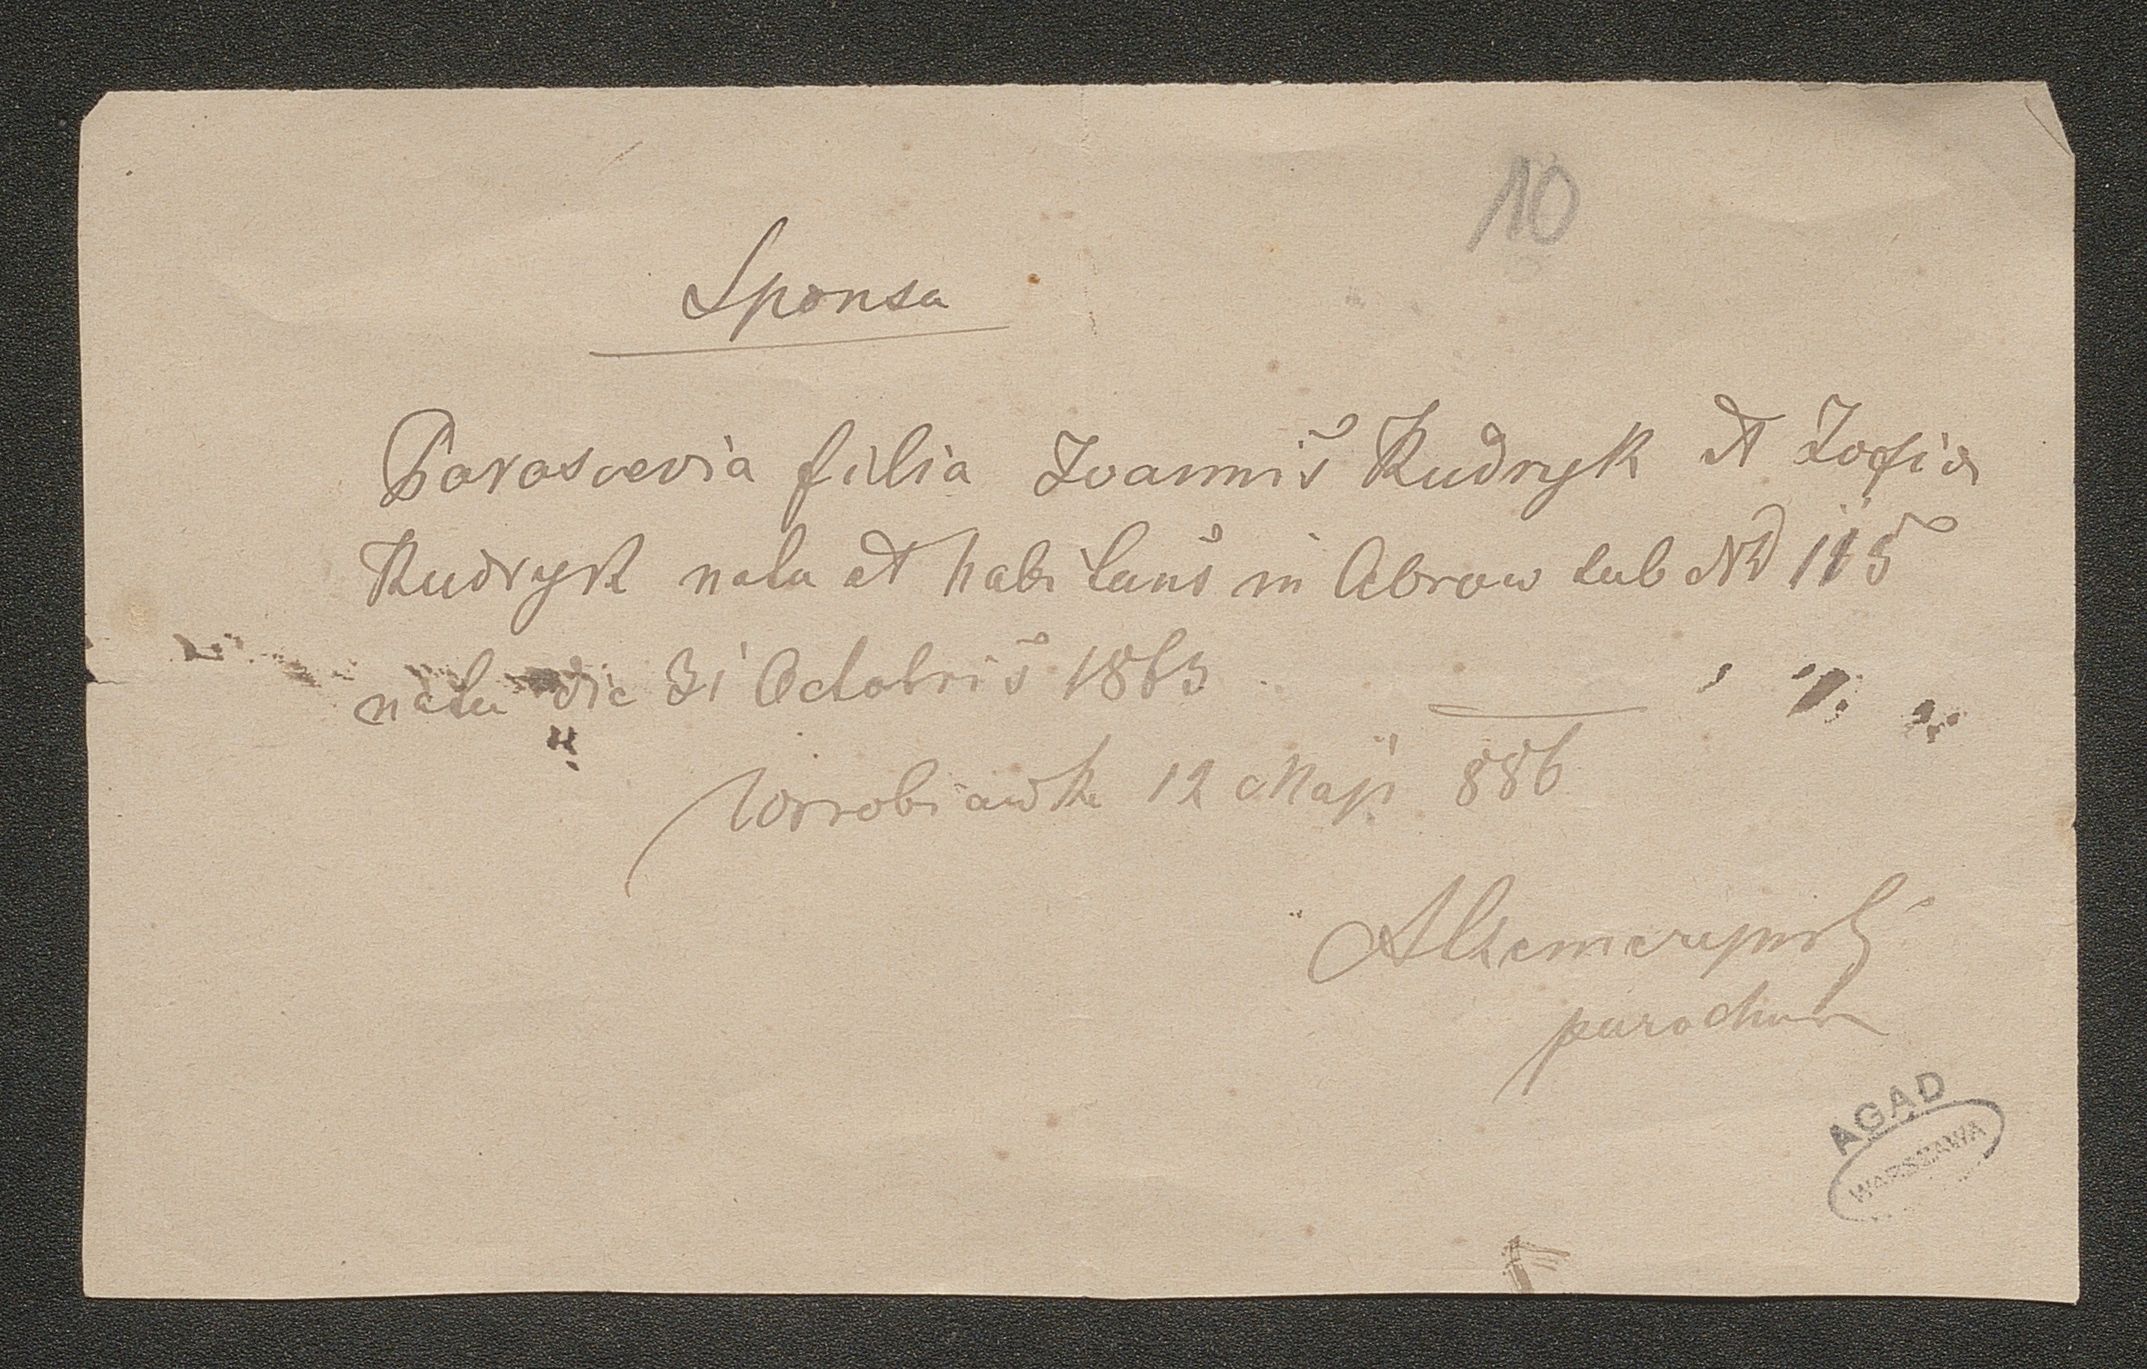 10
Sponsa
Parascevia filia Ioannis Kudryk et Zofia
Kudryk nata et habitans in Obrow sub No 115
nata die 31 Octobris 1863
Worobiawka 12 Maji 886
parochus
AGAD
WARSZAWA